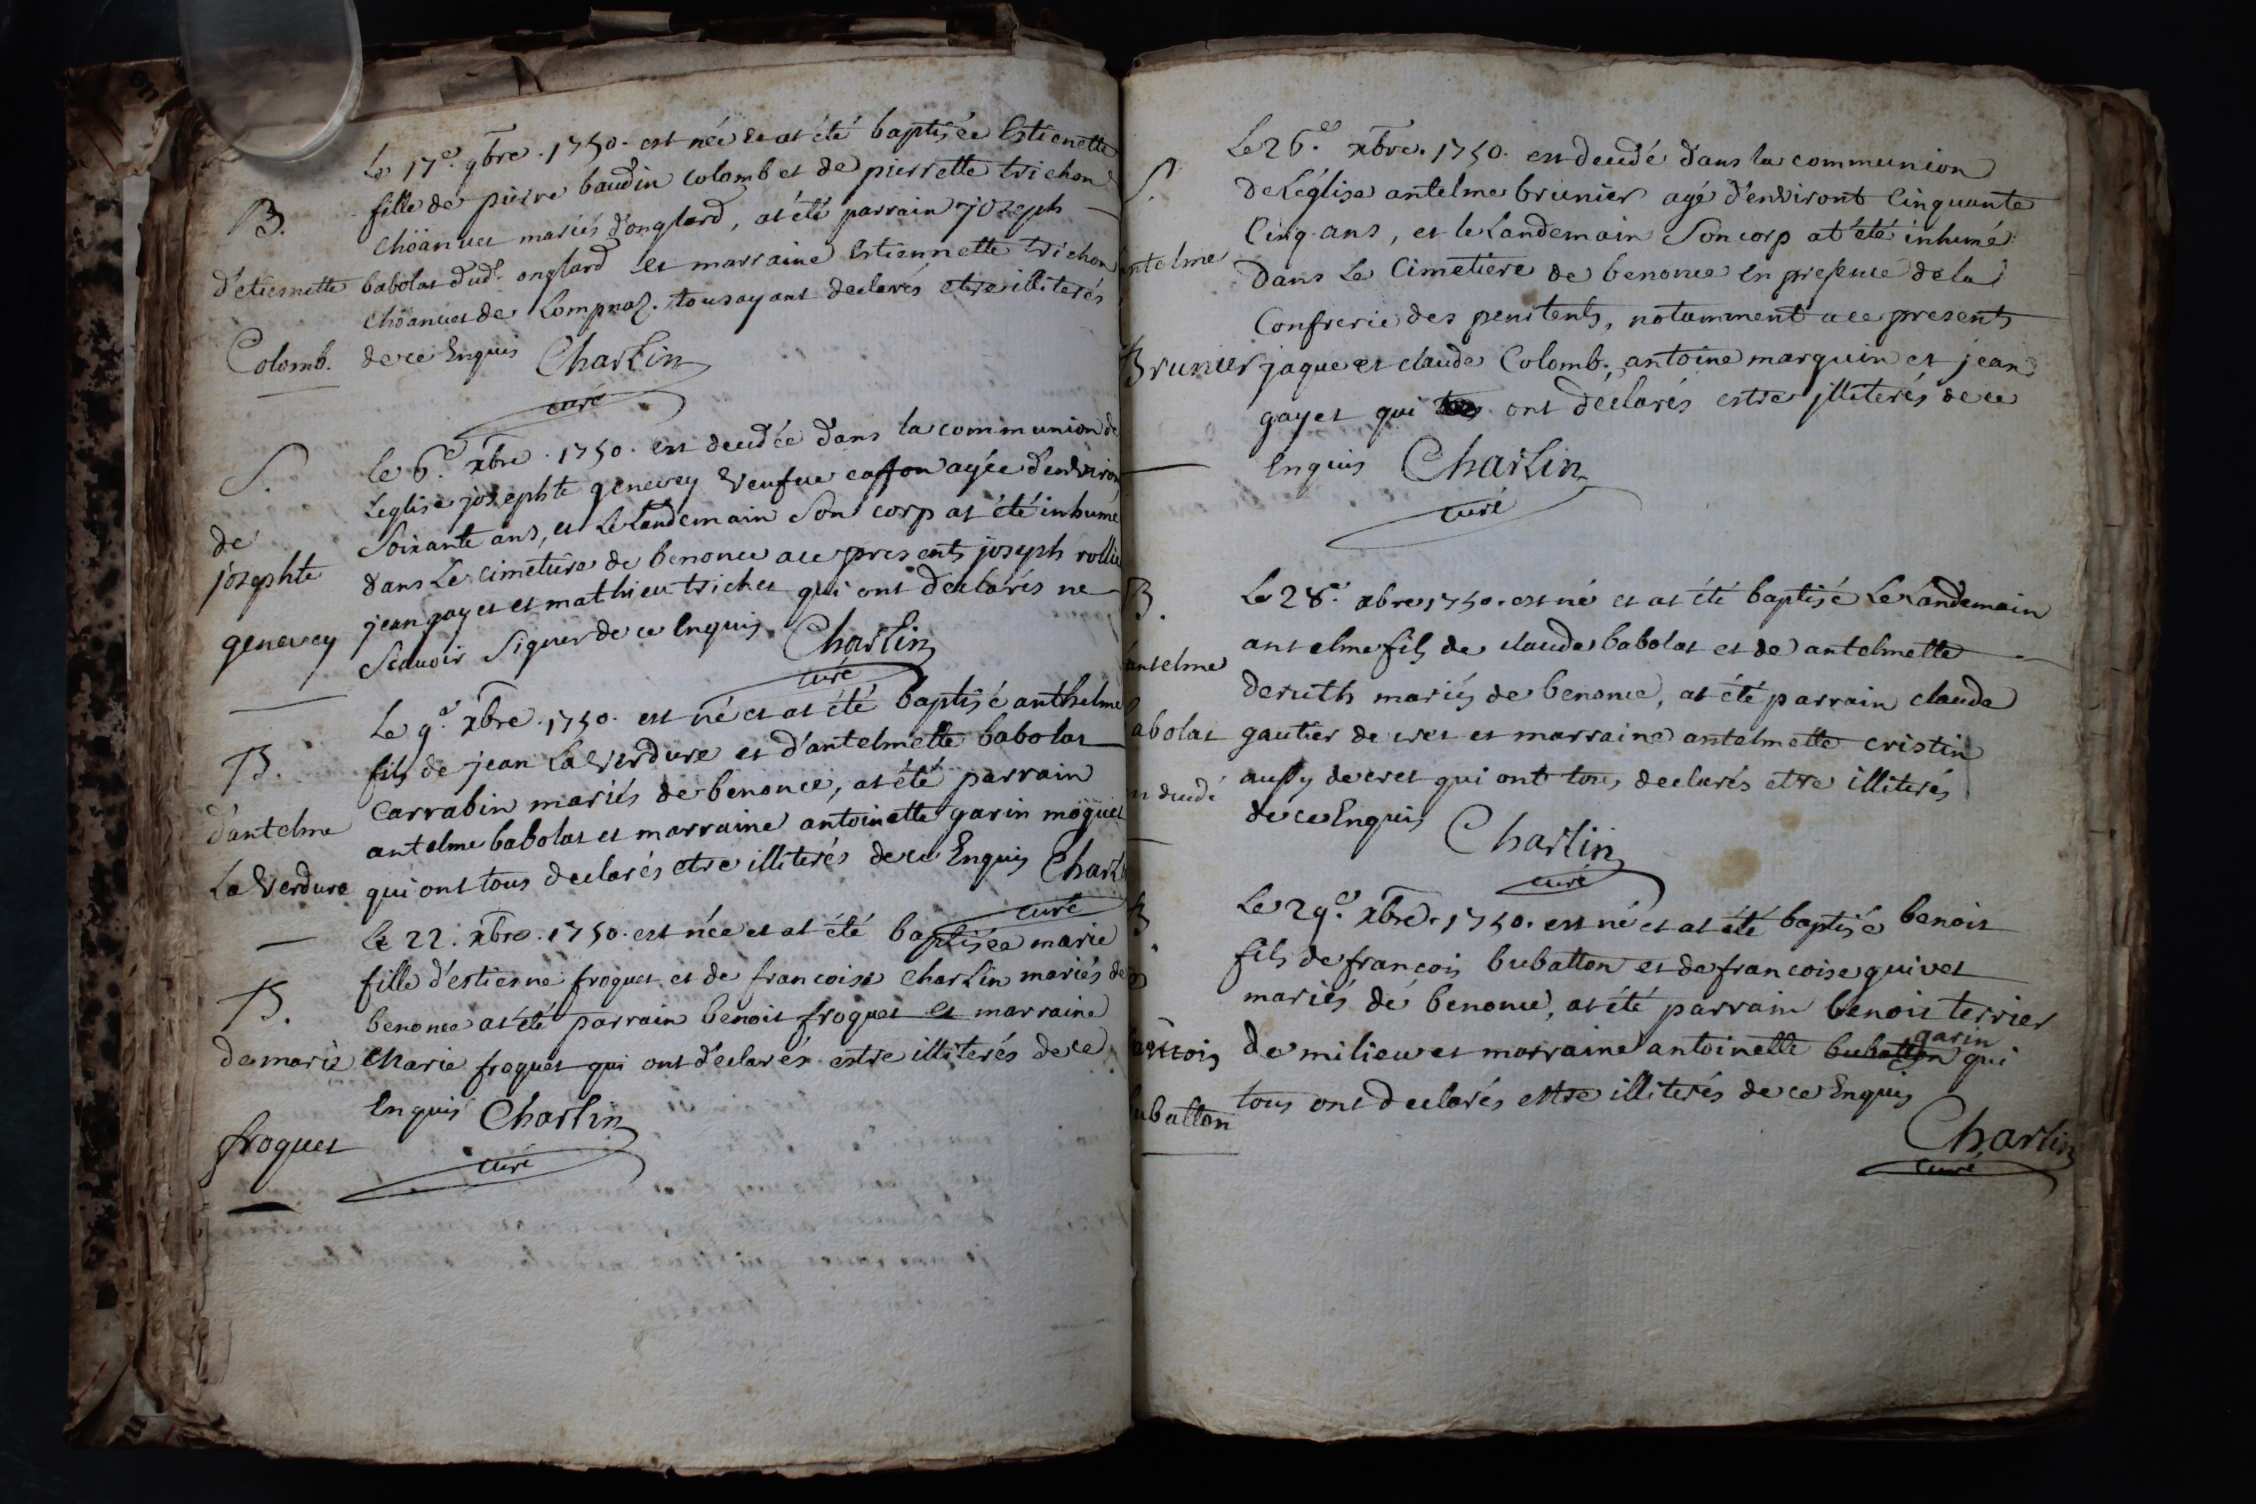 B.
d'etiennette
Colomb.
Le 17e. 9bre. 1750. est née et at été baptisée Estienette
fille de pierre baudin colomb et de pierrette trichon
chöannet mariés d'onglard, at été parrain joseph
babolat dud. onglard et marraine Estiennette trichon
chöannet de Lompnaz. tous ayant declarés etre illiterés
de ce Enquis Charlin
curé
S.
de
josephte
genevey
le 6e. xbre. 1750. est decedée dans la communion de
Leglise josephte genevey veufue caffon agée d'environ
Soixante ans, et Le Landemain Son corp at été inhumé
dans Le cimetiere de benonce ace presents joseph rollie
jean gayet et mathieu trichet qui ont declarés ne
Scauoir Signer de ce Enquis Charlin
curé
B.
d'antelme
La Verdure
Le 9e. xbre. 1750. est né et at été baptisé anthelme
fils de jean La Verdure et d'antelmette babolat
carrabin mariés de benonce, at été parrain
antelme babolat et marraine antoinette garin möguet
qui ont tous declarés etre illiterés de ce Enquis Charl
curé
B.
de marie
froguet
Le 22. xbre. 1750. est née et at été baptisée marie
fille d'estienne froguet et de francoise Charlin mariés de
benonce at été parrain benoit froguet et marraine
Marie froguet qui ont declarés estre illiterés de ce
Enquis Charlin
curé
S.
antelme
Brunier
Le 26e. xbre. 1750. est decedé dans la communion
de Léglise antelme brunier agé d'environt Cinquante
Cinq ans, et le Landemain Son corp at été inhumé
dans Le Cimetiere de benonce En presence de la
Confrerie des penitents, notamment a ce presents
jaque et claude Colomb. antoine marguin et jean
gayet qui ont déclarés estre illiterés de ce
Enquis Charlin
curé
B.
antelme
abolat
decedé
Le 28e. xbre 1750. est né et at été baptisé Le Landemain
antelme fils de claude babolat et de antelmette
deruth mariés de benonce, at été parrain claude
gautier de cret et marraine antelmette cristin
aussy de cret qui ont tous declarés etre illiterés
de ce Enquis Charlin
curé
B
benoit
ubatton
Le 29e. xbre. 1750. est né et at été baptisé benoit
fils de francois bubatton et de francoise quivet
mariés de benonce, at été parrain benoit terrier
de milieu et marraine antoinette bubatton garin qui
tous ont declarés estre illiterés de ce Enquis
Charlin
curé